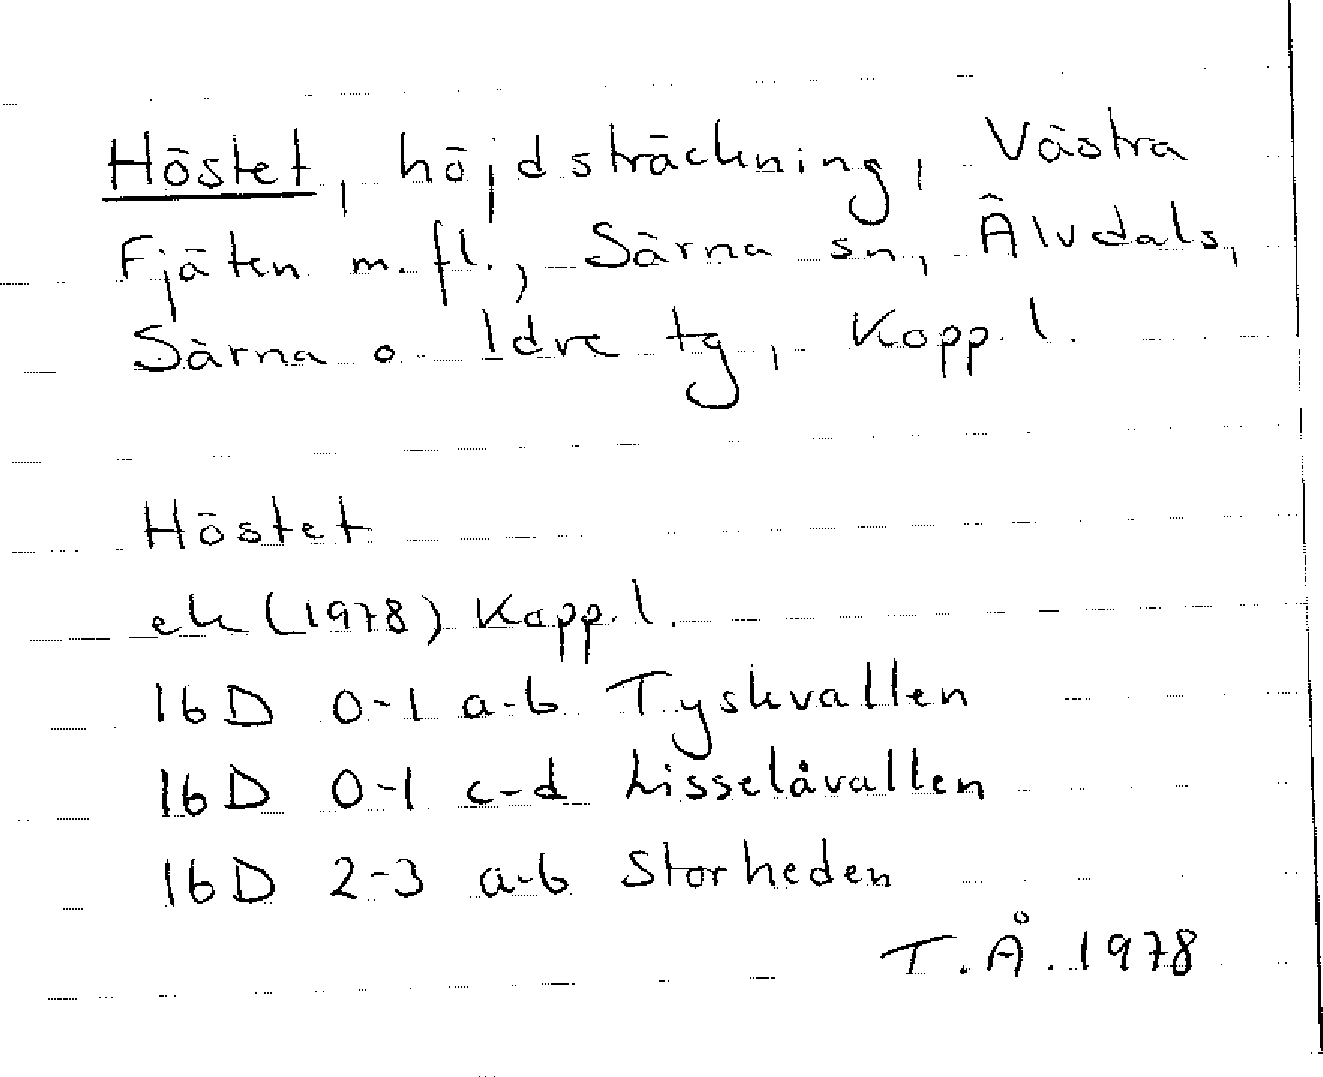 Höstet, höjdsträckning, Västra
Fjäten m.fl., Särna sn, Älvdals,
Särna o Idre tg, Kopp. l.
Höstet
ek (1978) Kopp. l.
16D 0-1 a-b Tyskvallen
16D 0-1 c-d Lisselåvallen
16D 2-3 a-b Storheden
T.Å. 1978